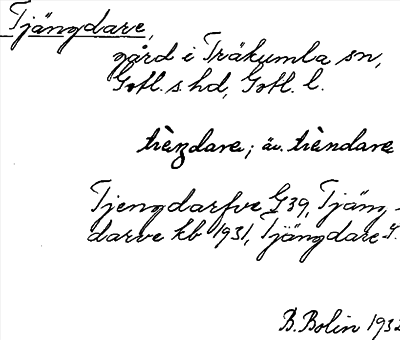 Tjängdare,
gård i Träkumla sn,
Gotl. s. hd, Gotl. l.
av. 
Tjengdarfve G39, Tjäng-
darve kb 1931, Tjängdare
B. Bolin 1932